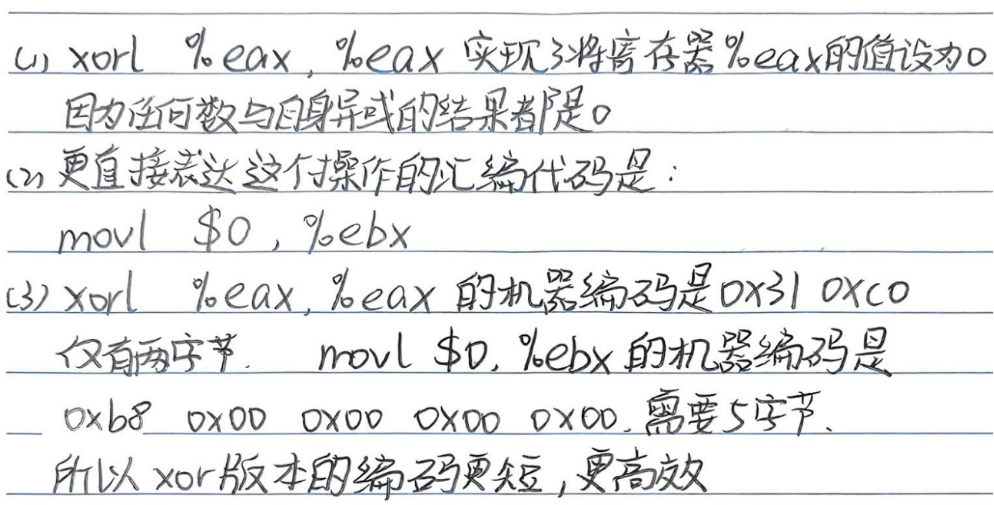 (1) xorl %eax, %eax 实现了将寄存器%eax的值设为0
因为任何数与自身异或的结果都是0
(2) 更直接表达这个操作的汇编代码是:
movl $0, %ebx
(3) xorl %eax, %eax 的机器编码是0x31 0xc0
仅有两字节. movl $0, %ebx 的机器编码是
0xb8 0x00 0x00 0x00 0x00. 需要5字节.
所以 xor版本的编码更短,更高效